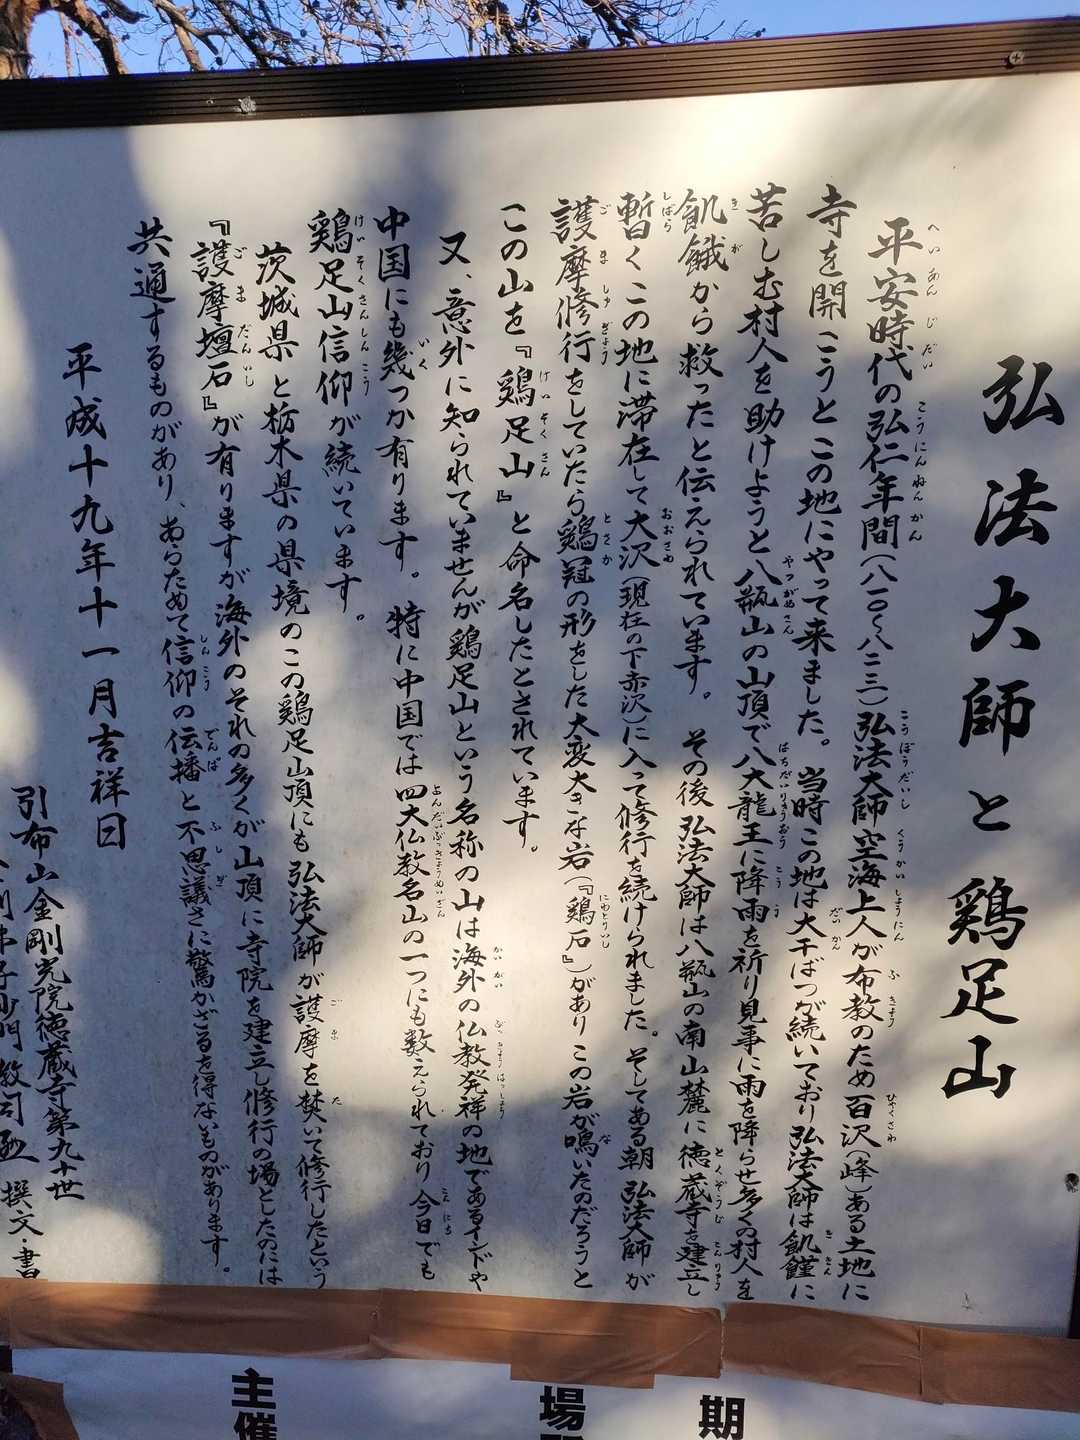 弘法大師と鶏足山
平安時代の弘仁年間(八一〇〜八二三)弘法大師空海上人が布教のため百沢(峰)ある土地に
寺を開こうとこの地にやって来ました。当時この地は大干ばつが続いており弘法大師は飢饉に
苦しむ村人を助けようと八瓶山の山頂で八大龍王に降雨を祈り見事に雨を降らせ多くの村人を
飢餓から救ったと伝えられています。その後弘法大師は八瓶山の南山麓に徳蔵寺を建立し
暫くこの地に滞在して大沢(現在の下赤沢)に入って修行を続けられました。そしてある朝弘法大師が
護摩修行をしていたら鶏冠の形をした大変大きな岩(『鶏石』)がありこの岩が鳴いたのだろうと
この山を『鶏足山』と命名したとされています。
又、意外に知られていませんが鶏足山という名称の山は海外の仏教発祥の地であるインドや
中国にも幾つか有ります。特に中国では四大仏教名山の一つにも数えられており今日でも
鶏足山信仰が続いています。
茨城県と栃木県の県境のこの鶏足山頂にも弘法大師が護摩を焚いて修行したという
『護摩壇石』が有りますが海外のそれの多くが山頂に寺院を建立し修行の場としたのには
共通するものがあり、あらためて信仰の伝播と不思議さに驚かざるを得ないものがあります。
平成十九年十一月吉祥日
引布山金剛光院徳蔵寺第九十世
撰文・書
期
場
主催